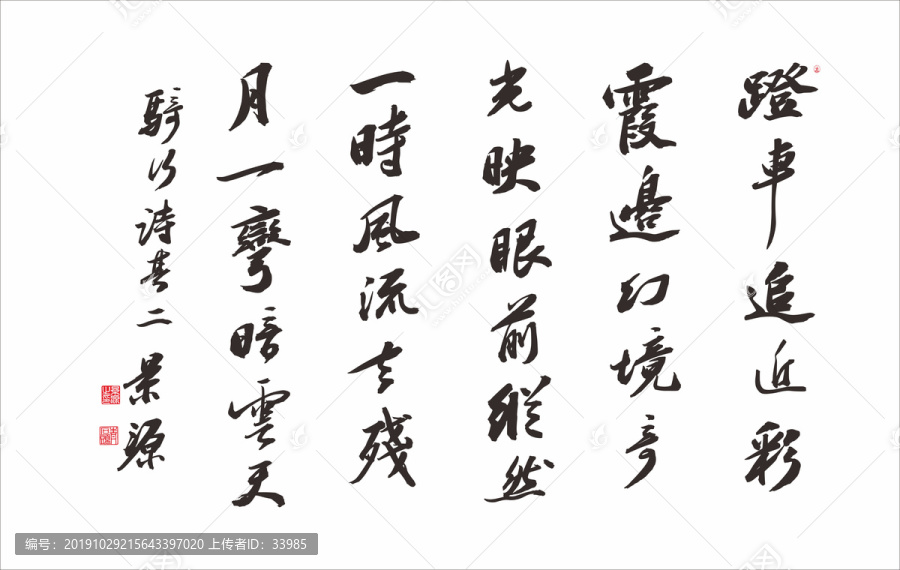 蹬車追近彩
霞邊幻境奇
光映眼前縱然
一時風流去殘
月一彎暗雲天
騎行詩其二 景源
编号：20191029215643397020 上传者ID：33985